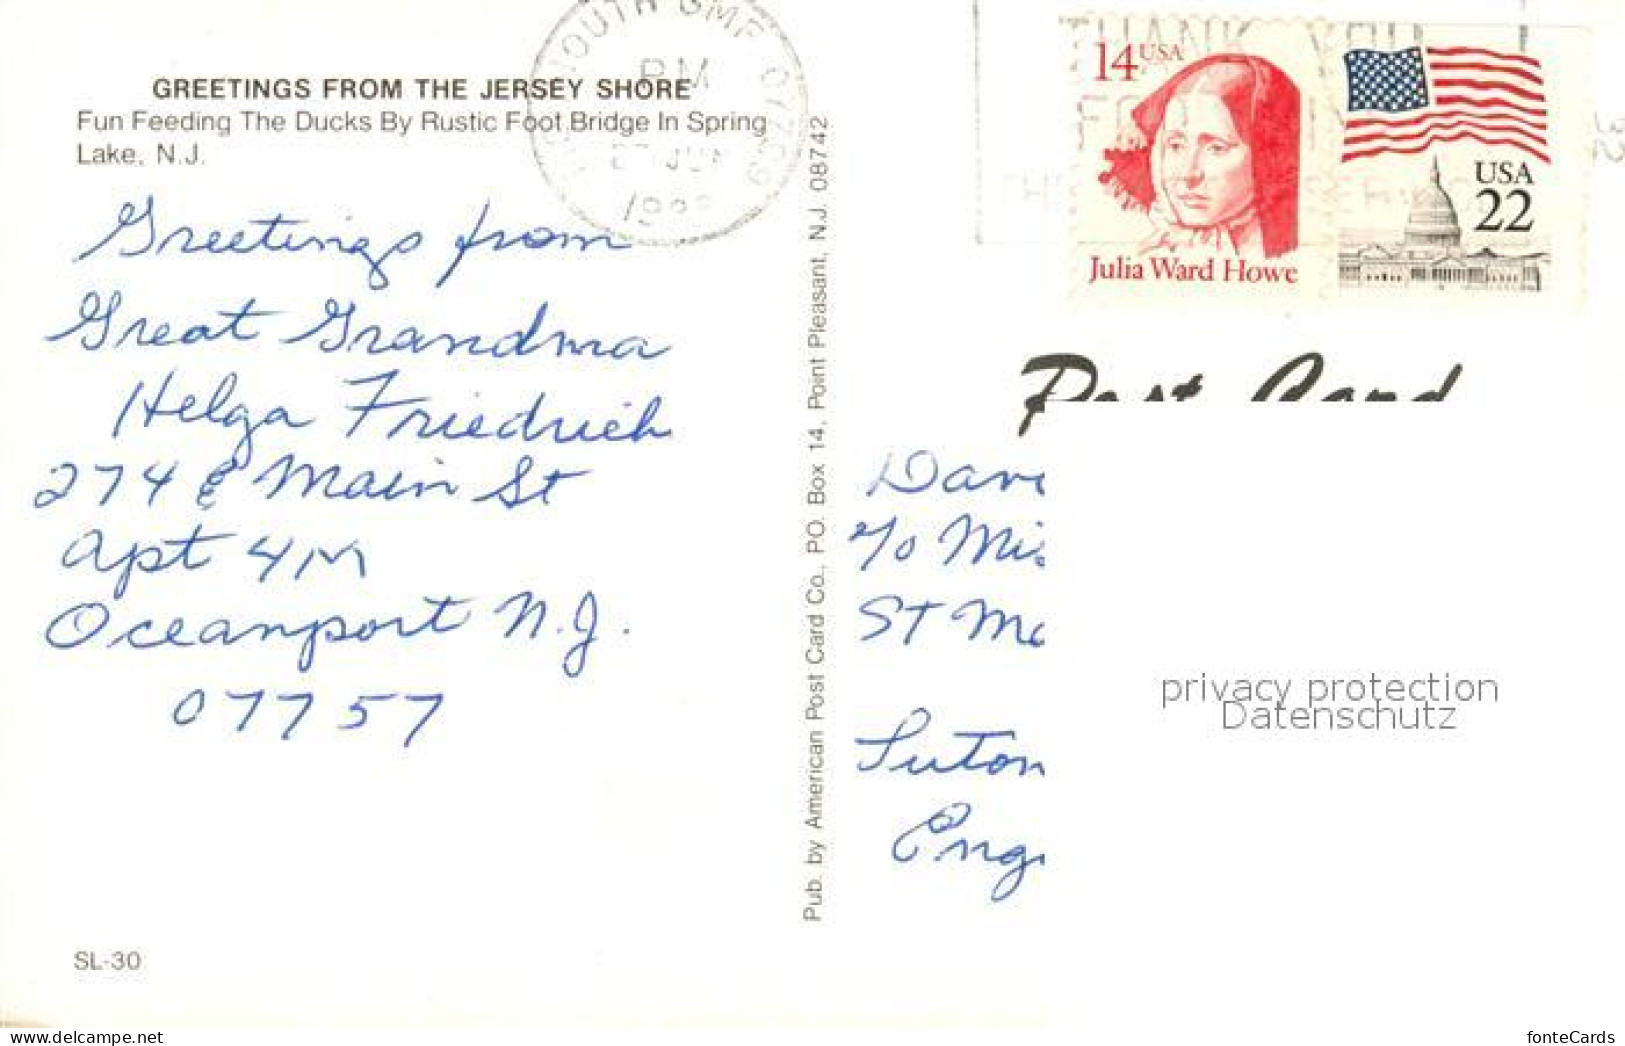 GREETINGS FROM THE JERSEY SHORE
Fun Feeding The Ducks By Rustic Foot Bridge In Spring
Lake, N.J.
Greetings from
Great Grandma
Helga Friedrich
274 E Main St
Apt 4M
Oceanport N.J.
07757
SL-30
Pub. by American Post Card Co., P.O. Box 14, Point Pleasant, N.J. 08742
OUTH GMF 077
PM
JUN
THANK YOU
14 USA
Julia Ward Howe
USA
22
32
Post Card
c/o Mis
ST
Suton
Eng
privacy protection
Datenschutz
delcampe.net/MU-Cards
fonteCards